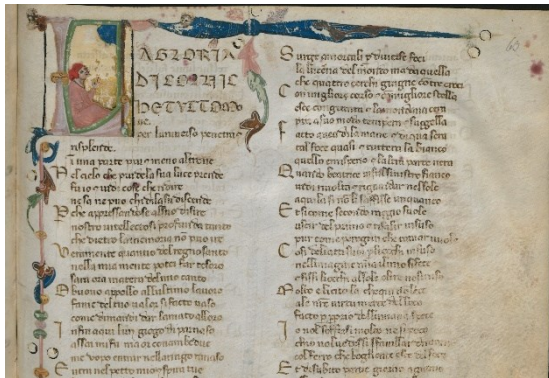 LA GLORIA
DI COLUI C
HE TUTTO MO
ue.
per luniuerso penetra e
risplende.
una parte piu e meno altroue
Nel cielo che piu de la sua luce prende
fu io e uidi cose che ridire
ne sa ne puo chi di lassu discende
P che appressandose al suo disire
nostro intellecto si profunda tanto
che dietro la memoria no puo ire
Veramente quantio del regno santo
nella mia mente potei far tesoro
sara ora matera del mio canto
O buono apollo allultimo lauoro
fame del tuo ualor si facto uaso
come dimandi dar lamato alloro
Infin a qui lun giogo di parnaso
assai mi fu ma or con ambedue
me uopo entrar nellaringo rimaso
E nel petto mio spira tue
63
Surge mortali p diuerse foci
la lucerna del mondo ma da quella
che quatro cerchi giugne con tre croci
C miglior corso e migliore stella
esce congiunta e la mondana cera
piu a suo modo tempera e suggella
F acto auea di la mane e di qua sera
tal foce quasi e tutto era la bianco
quello emisperio e laltra parte nera
Quando beatrice in sul sinistro fianco
uidi riuolta e riguardar nel sole
aquila si no li saffisse unquanco
E si come secondo raggio suole
uscir del primo e risalir insuso
pur come peregrin che tornar uuole
C osi dellatto suo p li occhi infuso
nell imagine mia il mio si fece
e fissi li occhi al sole oltre nostruso
Molto e licito la che qui no lece
ale nre uirtu merce del loco
facto p proprio dellumana spece
I o nol soffersi molto ne si poco
chio nol uedesse sfauillar dintorno
col ferro che bogliente esce del foco
E di subito parue giorno a giorno